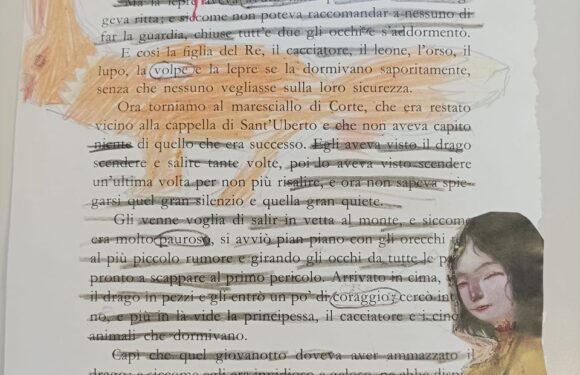 Ma la lepre aveva
geva ritta; e siccome non poteva raccomandar a nessuno di
far la guardia, chiuse tutt'e due gli occhi e s'addormentò.
E così la figlia del Re, il cacciatore, il leone, l'orso, il
lupo, la volpe e la lepre se la dormivano saporitamente,
senza che nessuno vegliasse sulla loro sicurezza.
Ora torniamo al maresciallo di Corte, che era restato
vicino alla cappella di Sant'Uberto e che non aveva capito
niente di quello che era successo. Egli aveva visto il drago
scendere e salire tante volte, poi lo aveva visto scendere
un'ultima volta per non più risalire, e ora non sapeva spie-
garsi quel gran silenzio e quella gran quiete.
Gli venne voglia di salir in vetta al monte, e siccome
era molto pauroso, si avviò pian piano con gli orecchi
al più piccolo rumore e girando gli occhi da tutte le
pronto a scappare al primo pericolo. Arrivato in cima,
il drago in pezzi e gli entrò un po' di coraggio; cercò
no, e più in là vide la principessa, il cacciatore e i
animali che dormivano.
Capì che quel giovanotto doveva aver ammazzato il
drago; e siccome egli era invidioso e geloso, ne ebbe